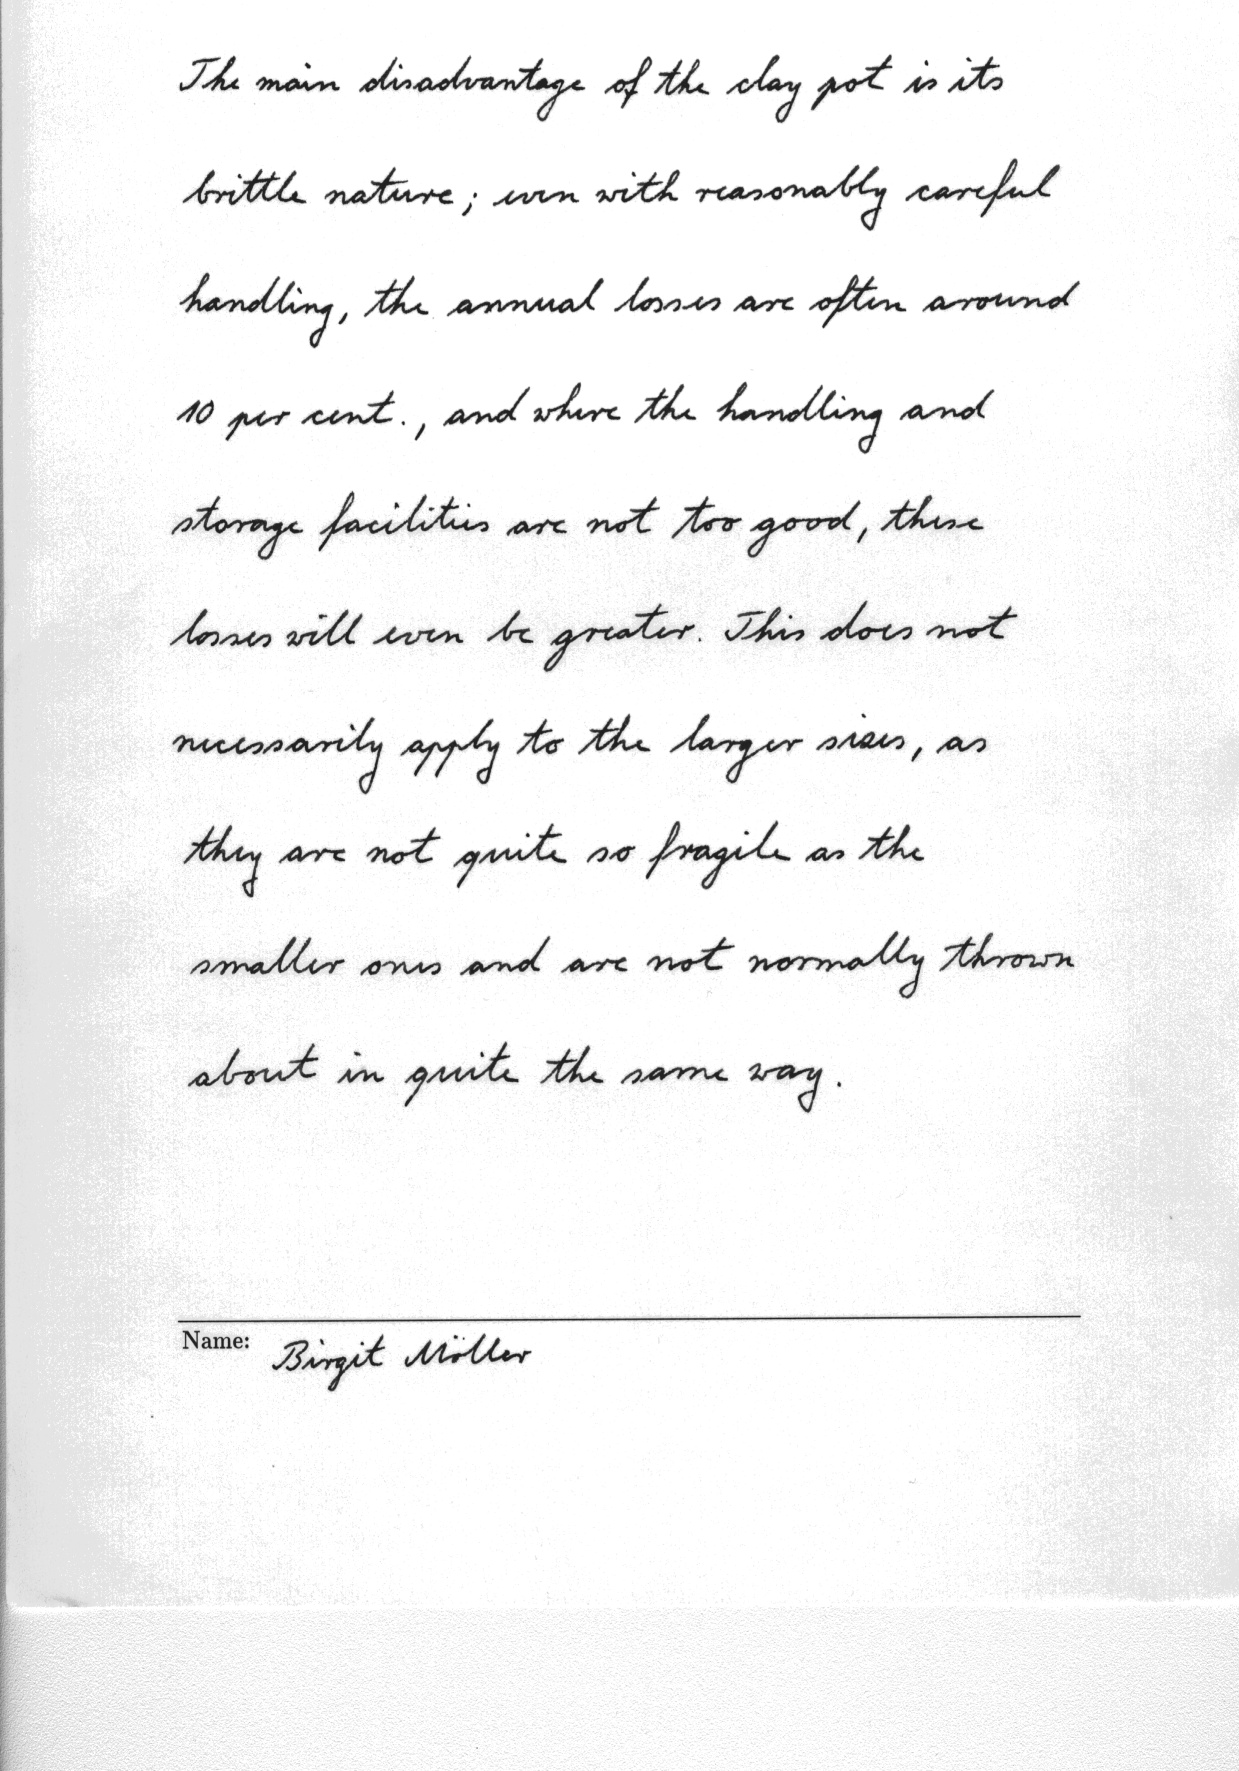 The main disadvantage of the clay pot is its
brittle nature; even with reasonably careful
handling, the annual losses are often around
10 per cent., and where the handling and
storage facilities are not too good, these
losses will even be greater. This does not
necessarily apply to the larger sizes, as
they are not quite so fragile as the
smaller ones and are not normally thrown
about in quite the same way.
Name: Birgit Möller